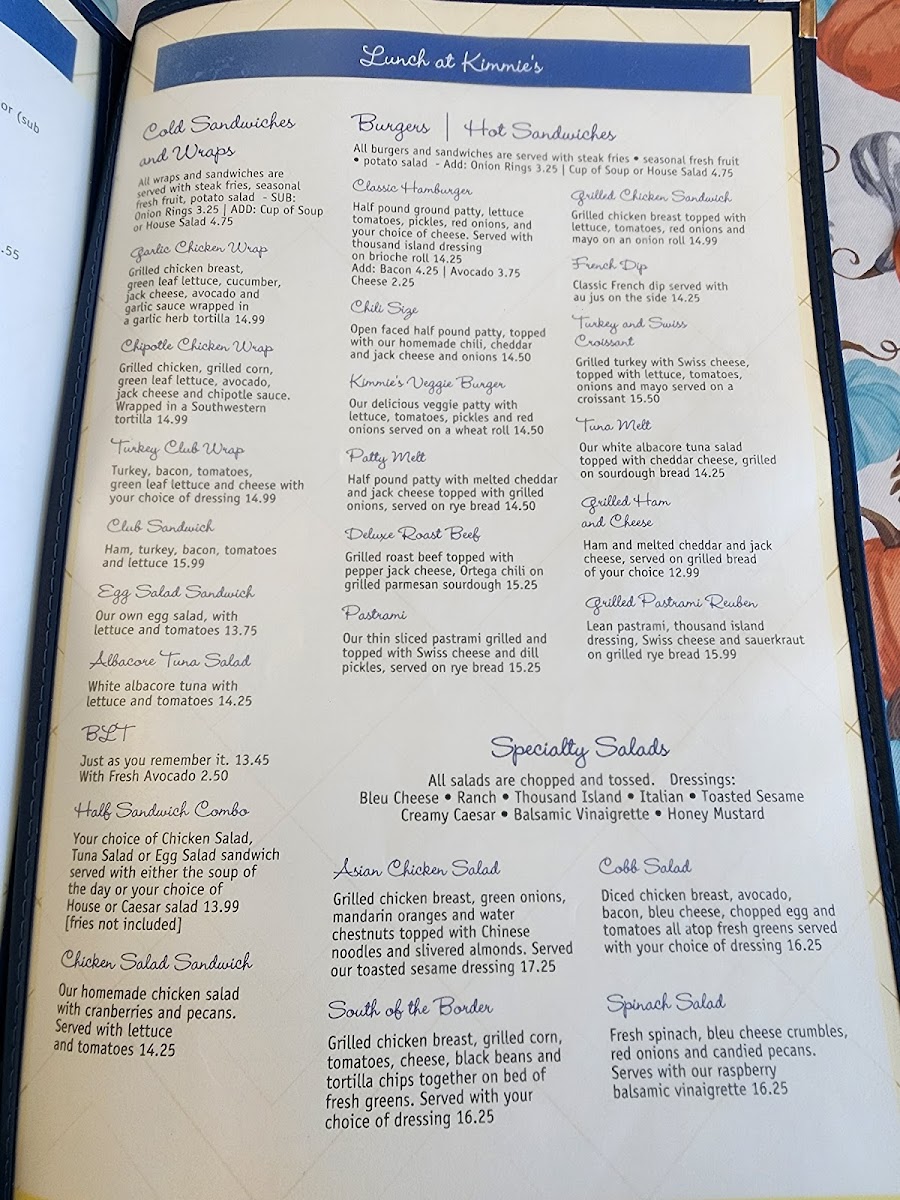 or (sub
.55
Lunch at Kimmie's
Cold Sandwiches
and Wraps
All wraps and sandwiches are
served with steak fries, seasonal
fresh fruit, potato salad - SUB:
Onion Rings 3.25 | ADD: Cup of Soup
or House Salad 4.75
Garlic Chicken Wrap
Grilled chicken breast,
green leaf lettuce, cucumber,
jack cheese, avocado and
garlic sauce wrapped in
a garlic herb tortilla 14.99
Chipotle Chicken Wrap
Grilled chicken, grilled corn,
green leaf lettuce, avocado,
jack cheese and chipotle sauce.
Wrapped in a Southwestern
tortilla 14.99
Turkey Club Wrap
Turkey, bacon, tomatoes,
green leaf lettuce and cheese with
your choice of dressing 14.99
Club Sandwich
Ham, turkey, bacon, tomatoes
and lettuce 15.99
Egg Salad Sandwich
Our own egg salad, with
lettuce and tomatoes 13.75
Albacore Tuna Salad
White albacore tuna with
lettuce and tomatoes 14.25
BLT
Just as you remember it. 13.45
With Fresh Avocado 2.50
Half Sandwich Combo
Your choice of Chicken Salad,
Tuna Salad or Egg Salad sandwich
served with either the soup of
the day or your choice of
House or Caesar salad 13.99
[fries not included]
Chicken Salad Sandwich
Our homemade chicken salad
with cranberries and pecans.
Served with lettuce
and tomatoes 14.25
Burgers | Hot Sandwiches
All burgers and sandwiches are served with steak fries • seasonal fresh fruit
• potato salad - Add: Onion Rings 3.25 | Cup of Soup or House Salad 4.75
Classic Hamburger
Half pound ground patty, lettuce
tomatoes, pickles, red onions, and
your choice of cheese. Served with
thousand island dressing
on brioche roll 14.25
Add: Bacon 4.25 | Avocado 3.75
Cheese 2.25
Chili Size
Open faced half pound patty, topped
with our homemade chili, cheddar
and jack cheese and onions 14.50
Kimmie's Veggie Burger
Our delicious veggie patty with
lettuce, tomatoes, pickles and red
onions served on a wheat roll 14.50
Patty Melt
Half pound patty with melted cheddar
and jack cheese topped with grilled
onions, served on rye bread 14.50
Deluxe Roast Beef
Grilled roast beef topped with
pepper jack cheese, Ortega chili on
grilled parmesan sourdough 15.25
Pastrami
Our thin sliced pastrami grilled and
topped with Swiss cheese and dill
pickles, served on rye bread 15.25
Grilled Chicken Sandwich
Grilled chicken breast topped with
lettuce, tomatoes, red onions and
mayo on an onion roll 14.99
French Dip
Classic French dip served with
au jus on the side 14.25
Turkey and Swiss
Croissant
Grilled turkey with Swiss cheese,
topped with lettuce, tomatoes,
onions and mayo served on a
croissant 15.50
Tuna Melt
Our white albacore tuna salad
topped with cheddar cheese, grilled
on sourdough bread 14.25
Grilled Ham
and Cheese
Ham and melted cheddar and jack
cheese, served on grilled bread
of your choice 12.99
Grilled Pastrami Reuben
Lean pastrami, thousand island
dressing, Swiss cheese and sauerkraut
on grilled rye bread 15.99
Specialty Salads
All salads are chopped and tossed. Dressings:
Bleu Cheese • Ranch • Thousand Island • Italian • Toasted Sesame
Creamy Caesar • Balsamic Vinaigrette • Honey Mustard
Asian Chicken Salad
Grilled chicken breast, green onions,
mandarin oranges and water
chestnuts topped with Chinese
noodles and slivered almonds. Served
our toasted sesame dressing 17.25
South of the Border
Grilled chicken breast, grilled corn,
tomatoes, cheese, black beans and
tortilla chips together on bed of
fresh greens. Served with your
choice of dressing 16.25
Cobb Salad
Diced chicken breast, avocado,
bacon, bleu cheese, chopped egg and
tomatoes all atop fresh greens served
with your choice of dressing 16.25
Spinach Salad
Fresh spinach, bleu cheese crumbles,
red onions and candied pecans.
Serves with our raspberry
balsamic vinaigrette 16.25